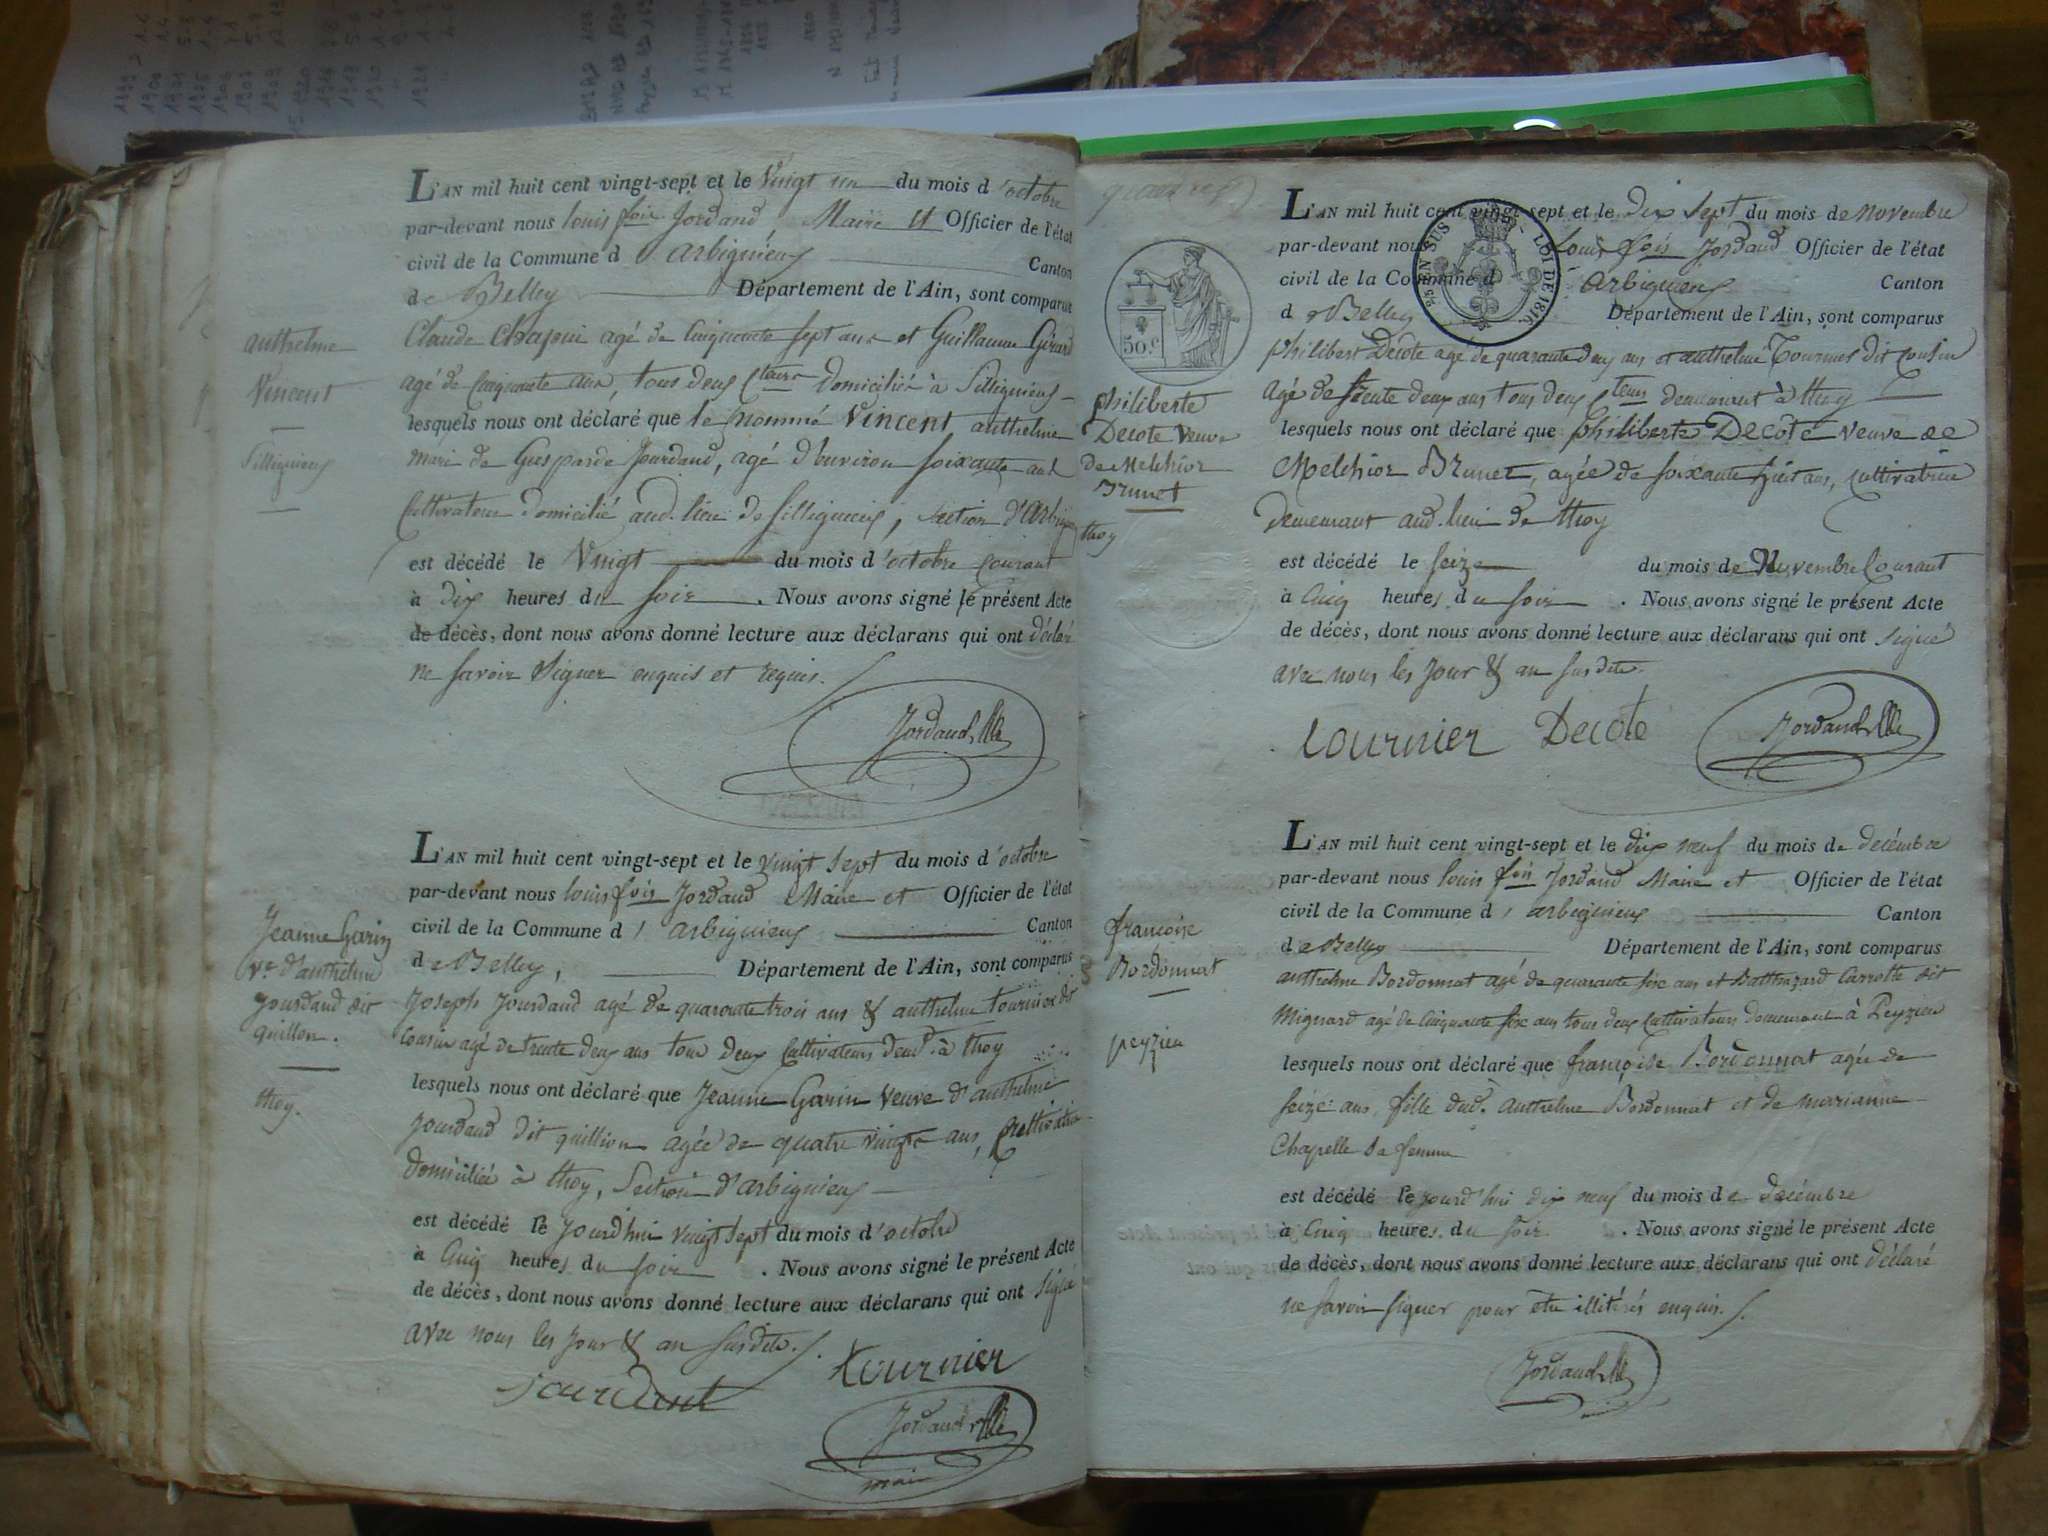 L'AN mil huit cent vingt-sept et le Vingt un du mois d'octobre
par-devant nous louis fois Jordand, Maire et Officier de l'état
civil de la Commune d'arbignieu Canton
de Belley Département de l'Ain, sont comparus
Claude Chapui agé de Cinquante sept ans et Guillaume Girard
agé de Cinquante ans, tous deux Cteurs Domiciliés à Sillignieu
lesquels nous ont déclaré que le nommé Vincent anthelme
mari de Gasparde Jourdand, agé d'environ soixante ans
Cultivateur domicilié aud. lieu de Sillignieu, section d'arbig
est décédé le Vingt du mois d'octobre Courant
à dix heures du soir. Nous avons signé le présent Acte
de décès, dont nous avons donné lecture aux déclarans qui ont déclaré
ne savoir signer enquis et requis.
Jordand
anthelme
Vincent
Sillignieu
L'AN mil huit cent vingt-sept et le vingt sept du mois d'octobre
par-devant nous louis fois Jordand Maire et Officier de l'état
civil de la Commune d'arbignieu Canton
de Belley, Département de l'Ain, sont comparus
Joseph Jourdand agé de quarante trois ans & anthelme tournier dit
Cousin agé de trente deux ans tous deux Cultivateurs demt. à thoy
lesquels nous ont déclaré que Jeanne Garin Veuve d'anthelme
Jourdand dit quillion agée de quatre vingts ans, Cultivatrice
domiciliée à thoy, Section d'arbignieu
est décédé le jourd'hui vingt sept du mois d'octobre
à Cinq heures du soir. Nous avons signé le présent Acte
de décès, dont nous avons donné lecture aux déclarans qui ont signé
avec nous les jour & an susdits.
tournier
Jourdant
Jordand
maire
Jeanne Garin
Ve. d'anthelme
Jourdand dit
quillon.
thoy.
L'AN mil huit cent vingt-sept et le dix sept du mois de novembre
par-devant nous Louis fois Jordand Officier de l'état
civil de la Commune d'Arbignieu Canton
de Belley Département de l'Ain, sont comparus
philibert Decote agé de quarante deux ans et anthelme Tournier dit cousin
agé de trente deux ans tous deux Cteurs demeurant à thoy
lesquels nous ont déclaré que philiberte Decote veuve de
Melchior Brunet, agée de soixante huit ans, cultivatrice
demeurant aud. lieu de thoy
est décédé le seize du mois de Novembre Courant
à Cinq heures du soir. Nous avons signé le présent Acte
de décès, dont nous avons donné lecture aux déclarans qui ont signé
avec nous les jour & an susdits.
tournier Decote Jordand
EN SUS LOI DE 1816
50.c
philiberte
Decote veuve
de Melchior
Brunet
thoy
L'AN mil huit cent vingt-sept et le dix neuf du mois de decémbre
par-devant nous louis fois Jordand Maire et Officier de l'état
civil de la Commune d'arbignieu Canton
de Belley Département de l'Ain, sont comparus
anthelme Bordonnat agé de quarante six ans et Balthazard Carrotte dit
Mignard agé de Cinquante six ans tous deux Cultivateurs demeurant à Peyzieu
lesquels nous ont déclaré que françoise Bordonnat agée de
seize ans, fille dud. anthelme Bordonnat et de marianne
Chapelle sa femme
est décédé le jourd'hui dix neuf du mois de decémbre
à Cinq heures du soir. Nous avons signé le présent Acte
de décès, dont nous avons donné lecture aux déclarans qui ont déclaré
ne savoir signer pour être illitérés enquis.
Jordand
françoise
Bordonnat
peyzieu